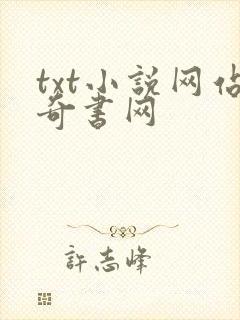 txt小説网站
奇書网
許志峰